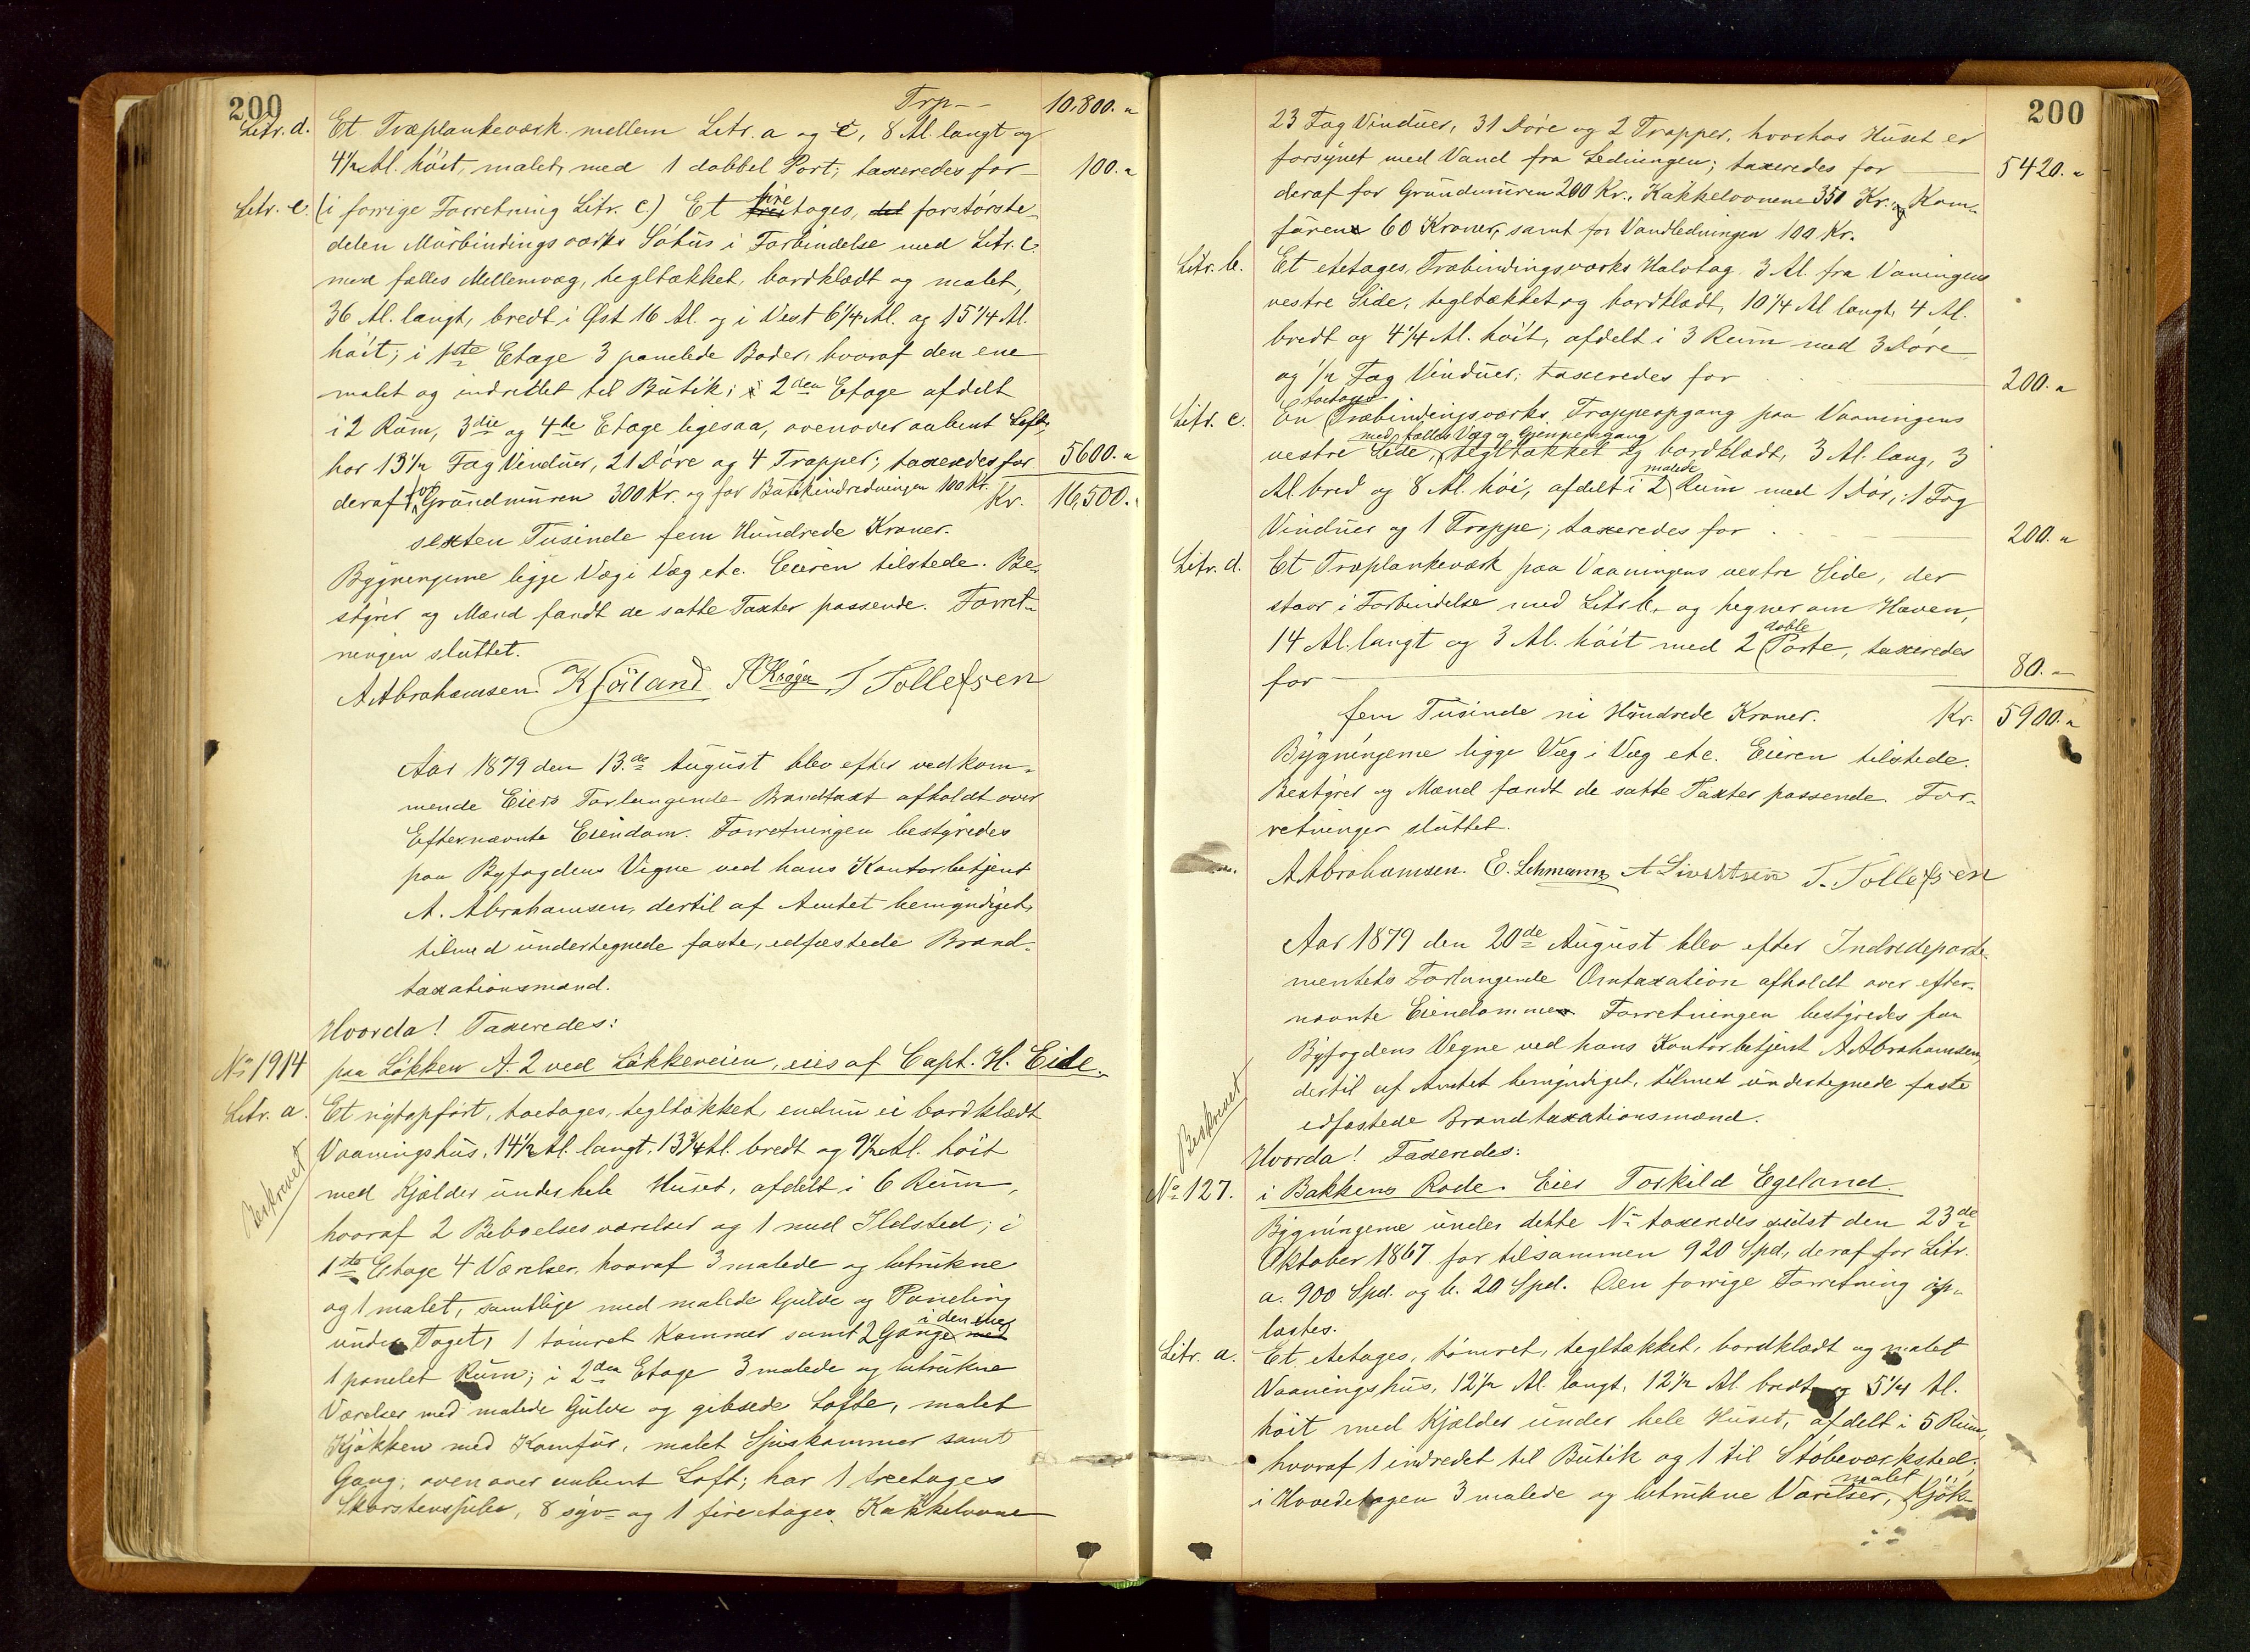 200
Trp-- 10,800. "
Litr. d. Et Træplankeværk mellem Litr. a og c, 8 Al. langt og
4½ Al. höit, malet, med 1 dobbel Port; taxeredes for 100. "
Litr. e. (i forrige Forretning Litr. c.) Et fire etages, forstørste-
delen Murbindingsværks Söhus i Forbindelse med Litr. c.
med fælles Mellemvæg, tegltækket, bordklædt og malet,
36 Al. langt, bredt i Øst 16 Al. og i Vest 6¼ Al. og 15¼ Al.
höit; i 1ste Etage 3 panelede Boder, hvoraf den ene
malet og indrettet til Butik; i 2den Etage afdelt
i 2 Rum, 3die og 4de Etage ligesaa, ovenover aabent Loft;
har 13½ Fag Vinduer, 21 Döre og 4 Trapper; taxeredes for 5600. "
deraf for Grundmuren 300 Kr. og for Butikindredningen 100 Kr. Kr. 16,500. "
sexten Tusinde fem Hundrede Kroner.
Bygningerne ligge Væg i Væg etc. Eieren tilstede. Be-
styrer og Mænd fandt de satte Taxter passende. Forret-
ningen sluttet.
A Abrahamsen. K Söiland T Tollefsen
Aar 1879 den 13.de August blev efter vedkom-
mende Eiers Forlangende Brandtaxt afholdt over
Efternævnte Eiendom. Forretningen bestyredes
paa Byfogdens Vegne ved hans Kontorbetjent
A. Abrahamsen, dertil af Amtet bemyndiget,
tilmed undertegnede faste, edfæstede Brand-
taxationsmænd.
Hvorda! Taxeredes:
No 1914 paa Lökken A. 2 ved Lökkeveien, eies af Capt. H. Eide.
Litr. a. Et nyt opfört, toetages, tegltækket, endnu ei bordklædt
Vaaningshus, 14½ Al. langt, 13¾ Al. bredt og 9½ Al. höit
Beskrevet
med Kjælder under hele Huset, afdelt i 6 Rum,
hvoraf 2 Beboelsesværelser og 1 med Ildsted; i
1ste Etage 4 Værelser, hvoraf 3 malede og betrukne
og 1 malet, samtlige med malede Gulve og Paneling
under Taget, 1 tömret Kammer samt 2 Gange i den ene med
1 panelet Rum; i 2den Etage 3 malede og betrukne
Værelser med malede Gulve og gibsede Lofte, malet
Kjökken med Komfür, malet Spiskammer samt
Gang, ovenover aabent Loft; har 1 treetages
Skorstenspibe, 8 syv- og 1 fireetages Kakkelovne
200
23 Fag Vinduer, 31 Döre og 2 Trapper, hvorhos Huset er
forsynet med Vand fra Ledningen; taxeredes for 5420. "
deraf for Grundmuren 200 Kr., Kakkelovnene 350 Kr., og Kom-
füren 60 Kroner, samt for Vandledningen 100 Kr.
Litr. b. Et etetages, Træbindingsværks Halvtag 3 Al. fra Vaaningens
vestre Side, tegltækket og bordklædt, 10¼ Al langt, 4 Al.
bredt og 4¼ Al. höit, afdelt i 3 Rum med 3 Döre
og ½ Fag Vinduer; taxeredes for 200. "
Litr. c. En toetages Træbindingsværks Trappeopgang paa Vaaningens
vestre Side, med fælles Væg og Gjennemgang tegltækket og bordklædt, 3 Al. lang, 3
Al. bred og 8 Al. höi, afdelt i 2 malede Rum med 1 Dör, 1 Fag
Vinduer og 1 Trappe; taxeredes for 200. "
Litr. d. Et Træplankeværk paa Vaaningens vestre Side, der
staar i Forbindelse med Litr. b, og hegner om Haven,
14 Al. langt og 3 Al. höit med 2 doble Porte, taxeredes
for 80. "
fem Tusinde ni Hundrede Kroner. Kr. 5900. "
Bygningerne ligge Væg i Væg etc. Eieren tilstede.
Bestyrer og Mænd fandt de satte Taxter passende. For-
retningen sluttet.
A Abrahamsen. E. Lehmann T. Tollefsen
Aar 1879 den 20de August blev efter Indredeparte-
mentets Forlangende Omtaxation afholdt over efter-
nævnte Eiendomme. Forretningen bestyredes paa
Byfogdens Vegne ved hans Kontorbetjent A Abrahamsen,
dertil af Amtet bemyndiget, tilmed undertegnede faste
edfæstede Brandtaxationsmænd.
Beskrevet
Hvorda! Taxeredes:
No 127. i Bakkens Rode. Eier Torkild Egeland.
Bygningerne under dette No taxeredes sidst den 23de
Oktober 1867 for tilsammen 920 Spd, deraf for Litr.
a. 900 Spd. og b. 20 Spd. Den forrige Forretning op-
læstes.
Litr. a. Et etetages, tömret, tegltækket, bordklædt og malet
Vaaningshus, 12½ Al. langt, 12½ Al. bredt og 5¼ Al.
höit med Kjælder under hele Huset, afdelt i 5 Rum,
hvoraf 1 indredet til Butik og 1 til Stöbeværksted;
i Hovedetagen 3 malede og betrukne Værelser, malet Kjök-